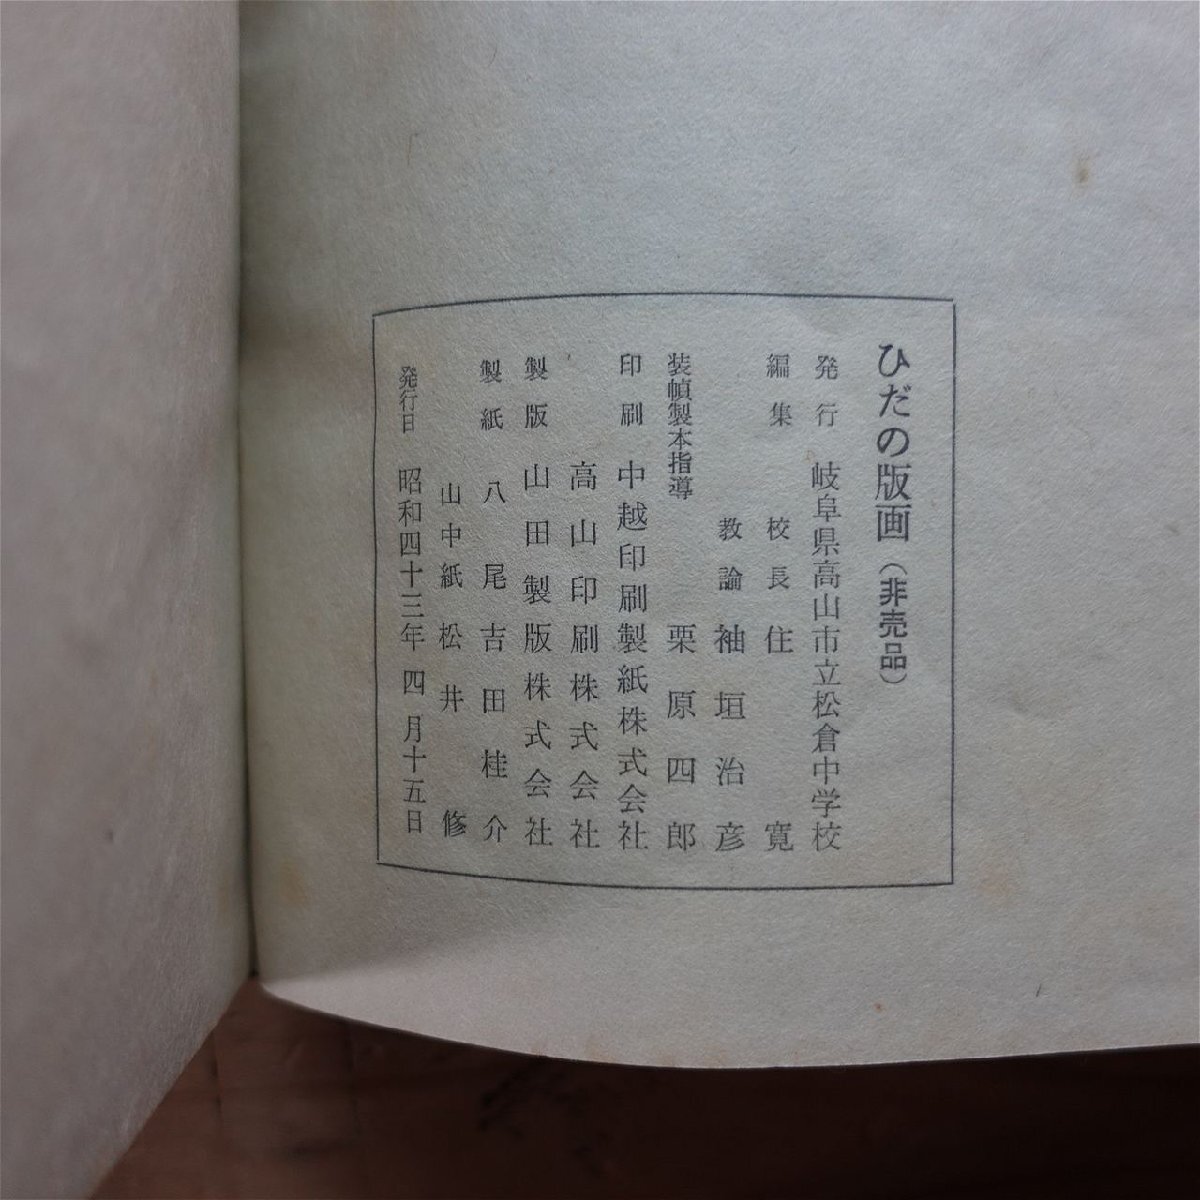 ひだの版画（非売品）
発行 岐阜県高山市立松倉中学校
編集 校長 住 寛
教諭 袖垣治彦
装幀製本指導 栗原四郎
印刷 中越印刷製紙株式会社
高山印刷株式会社
製版 山田製版株式会社
製紙 八尾 吉田桂介
山中紙 松井 修
発行日 昭和四十三年四月十五日